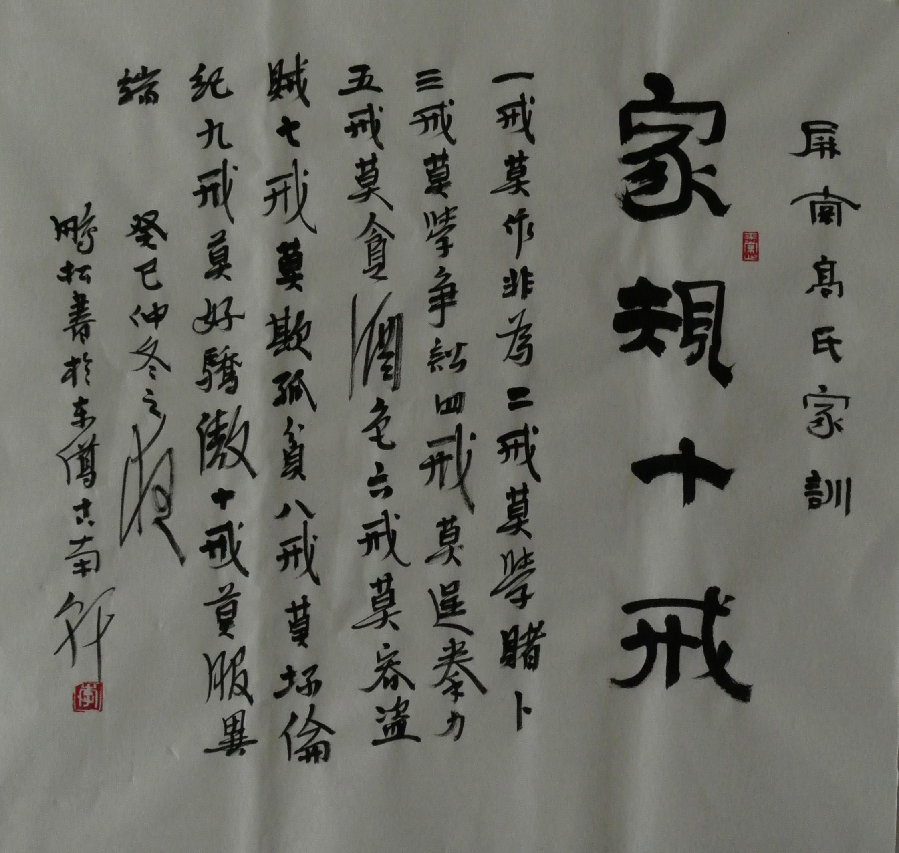 屏南高氏家訓
家規十戒
一戒莫作非為二戒莫學賭卜
三戒莫學争訟四戒莫逞拳力
五戒莫貪酒色六戒莫容盗
賊七戒莫欺孤貧八戒莫坏倫
紀九戒莫好驕傲十戒莫服異
端
癸巳仲冬之夜
鵬松書於东儒古南軒